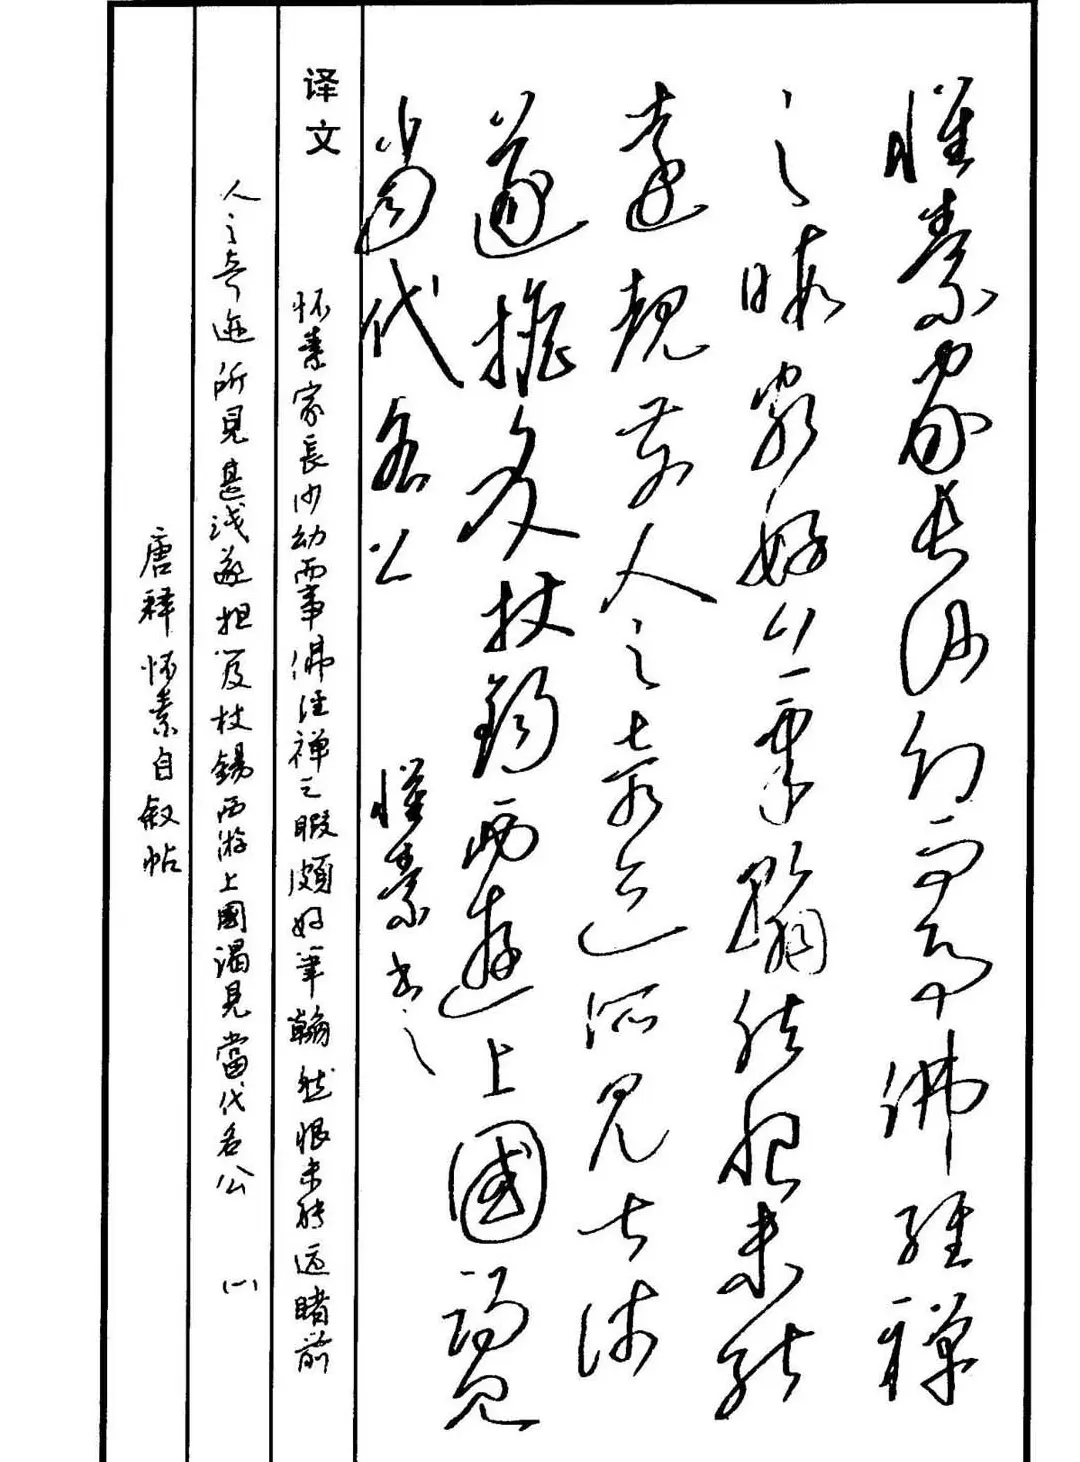 懷素家長沙幼而事佛經禪
之暇頗好筆翰然恨未能
遠覩前人之奇迹所見甚淺
遂擔笈杖錫西遊上國謁見
當代名公 懷素書之
译文
怀素家長沙幼而事佛经禅之暇頗好筆翰然恨未能远睹前
人之奇迹所見甚浅遂担笈杖錫西游上國謁見當代名公 (一)
唐释怀素自叙帖